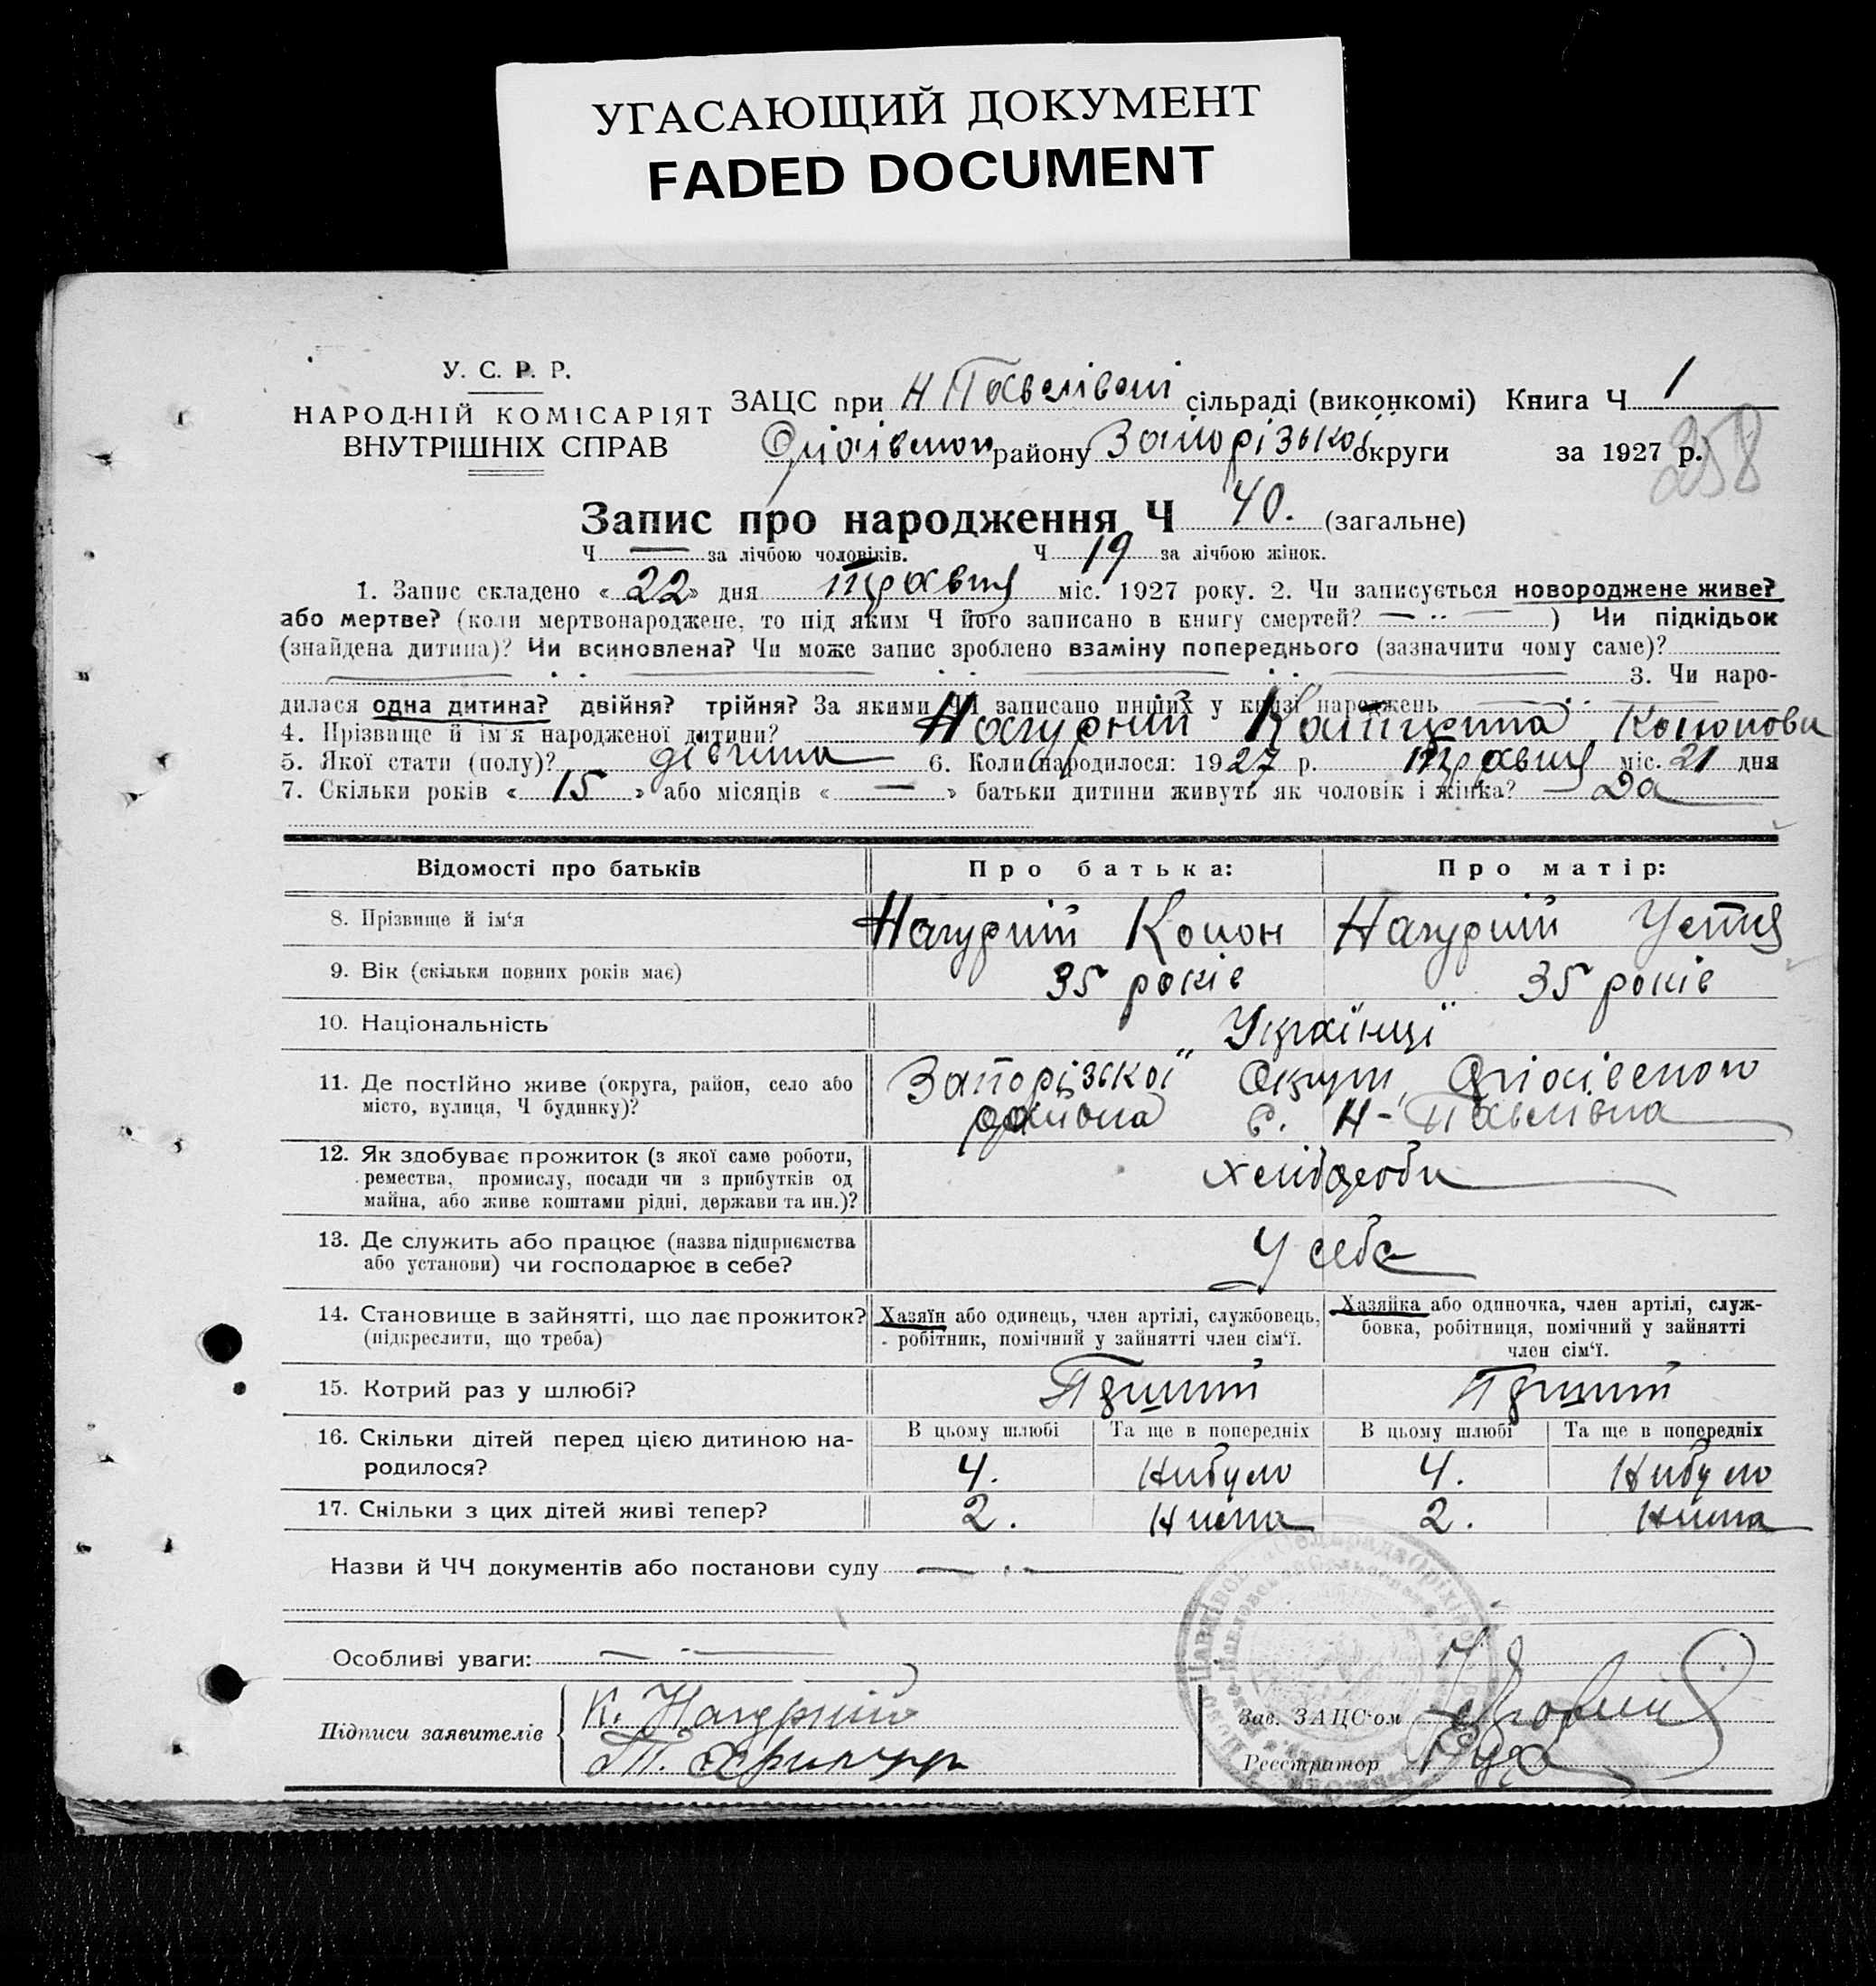 УГАСАЮЩИЙ ДОКУМЕНТ
FADED DOCUMENT
У. С. Р. Р.
НАРОДНІЙ КОМІСАРІЯТ
ВНУТРІШНІХ СПРАВ
ЗАЦС при Н Павлівсні сільраді (виконкомі) Книга Ч 1
району Запорізької округи за 1927 р.
258
Запис про народження Ч 40. (загальне)
Ч — за лічбою чоловіків. Ч 19 за лічбою жінок.
1. Запис складено « 22 » дня травня міс. 1927 року. 2. Чи записується новороджене живе?
або мертве? (коли мертвонароджене, то під яким Ч його записано в книгу смертей? — ·· — ) Чи підкідьок
(знайдена дитина)? Чи всиновлена? Чи може запис зроблено взаміну попереднього (зазначити чому саме)?
3. Чи наро-
дилася одна дитина? двійня? трійня? За якими ЧЧ записано инших у книзі народжень
4. Прізвище й ім'я народженої дитини? Нагурний
5. Якої статі (полу)? дівчина 6. Коли народилося: 1927 р. травня міс. 21 дня
7. Скільки років « 15 » або місяців « — » батьки дитини живуть як чоловік і жінка? — Да
Відомості про батьків
Про батька:
Про матір:
8. Прізвище й ім'я Нагурній Конон Нагурній Устня
9. Вік (скільки повних років має) 35 років 35 років
10. Національність Українці
11. Де постійно живе (округа, район, село або
місто, вулиця, Ч будинку)?
Запорізької Округи,
района с. Н-Павлівка
12. Як здобуває прожиток (з якої само роботи,
ремества, промислу, посади чи з прибутків од
майна, або живе коштами рідні, держави та ин.)?
хлібороби
13. Де служить або працює (назва підприємства
або установи) чи господарює в себе?
У себе
14. Становище в зайнятті, що дає прожиток?
(підкреслити, що треба)
Хазяїн або одинець, член артілі, службовець,
робітник, помічний у зайнятті член сім'ї.
Хазяйка або одиночка, член артілі, служ-
бовка, робітниця, помічний у зайнятті
член сім'ї.
15. Котрий раз у шлюбі? Перший Перший
В цьому шлюбі Та ще в попередніх В цьому шлюбі Та ще в попередніх
16. Скільки дітей перед цією дитиною на-
родилося?
4. Нибуло 4. Нибуло
17. Скільки з цих дітей живі тепер? 2. Нима 2. Нима
Назви й ЧЧ документів або постанови суду
Особливі уваги:
Підписи заявителів
К. Нагурний
Зав. ЗАЦС'ом
Реєстратор